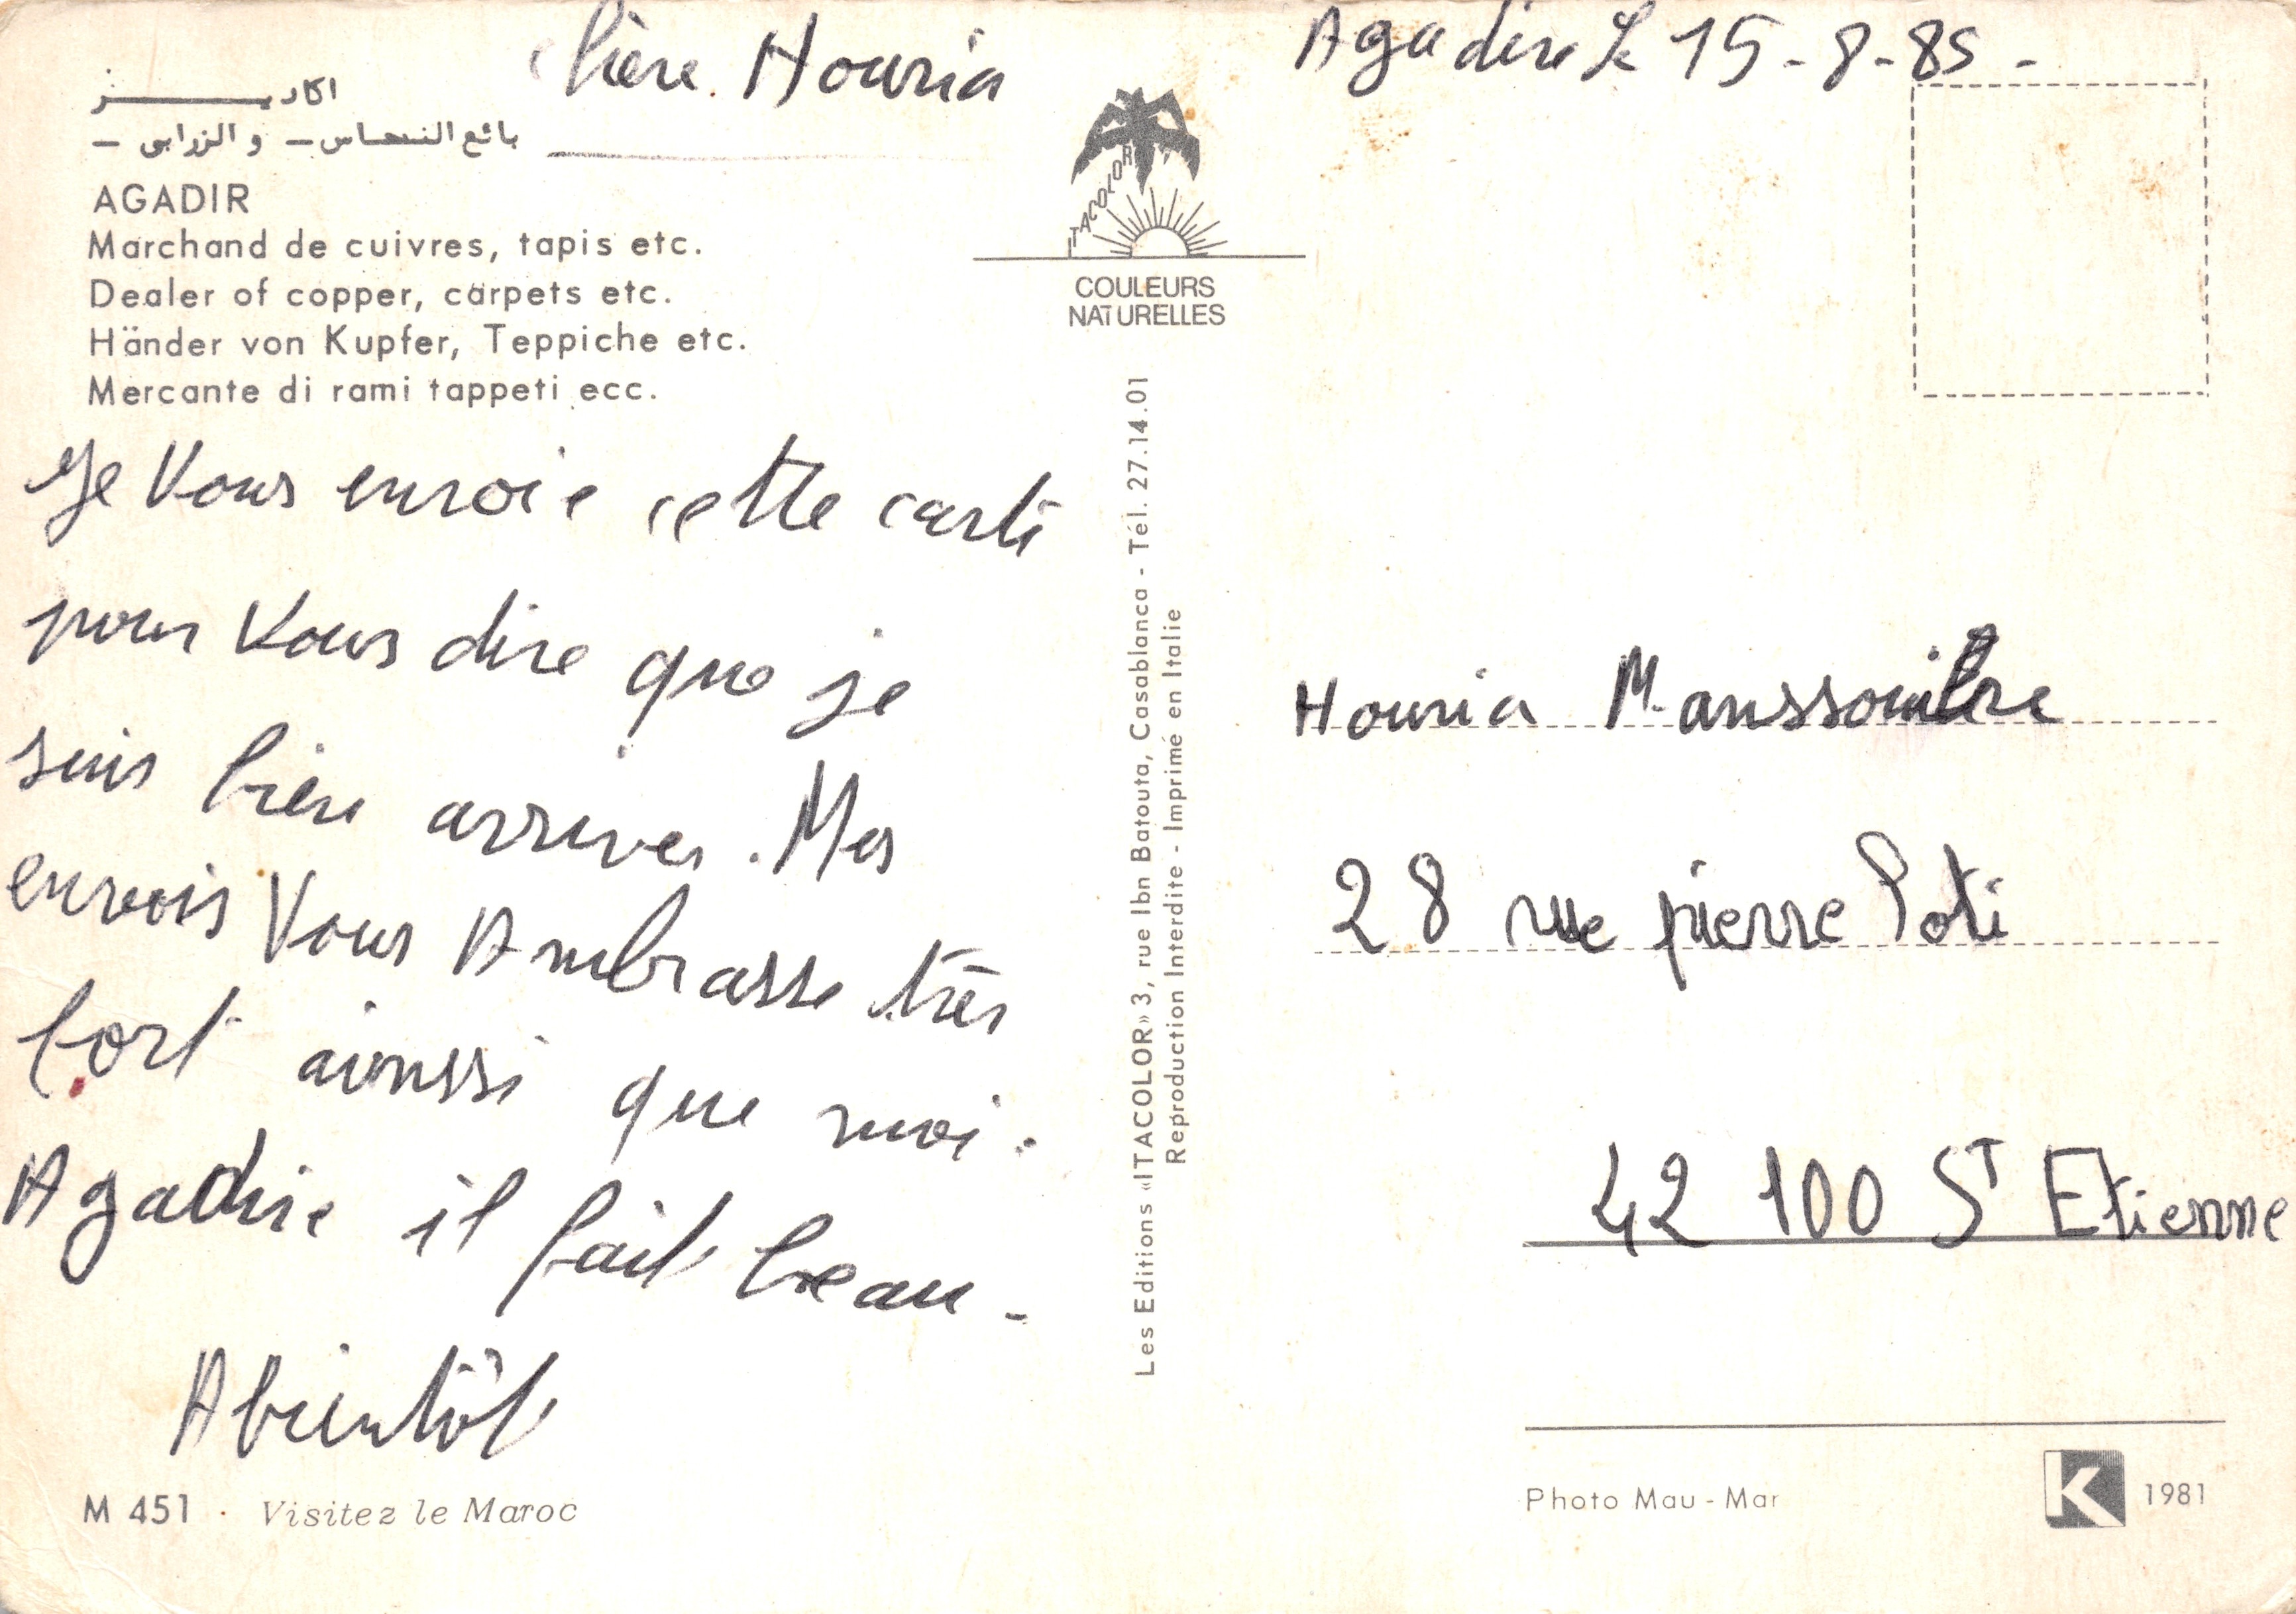 chère Houria
Agadire Le 15-8-85-
اكاديـــــــر
بائع النـحـاس – و الزرابي –
AGADIR
Marchand de cuivres, tapis etc.
Dealer of copper, carpets etc.
Händer von Kupfer, Teppiche etc.
Mercante di rami tappeti ecc.
ITACOLOR
COULEURS
NATURELLES
Je Vous envoie cette carte
pour Vous dire que je
suis bien arriver. Mes
envois Vous Ambrasse très
fort ainssi que moi.
Agadire il fait beau-
Abientôt
M 451 · Visitez le Maroc
Les Editions «ITACOLOR» 3, rue Ibn Batouta, Casablanca - Tél. 27.14.01
Reproduction Interdite - Imprimé en Italie
Houria
28 rue pierre Poti
42 100 ST Etienne
Photo Mau-Mar
K 1981